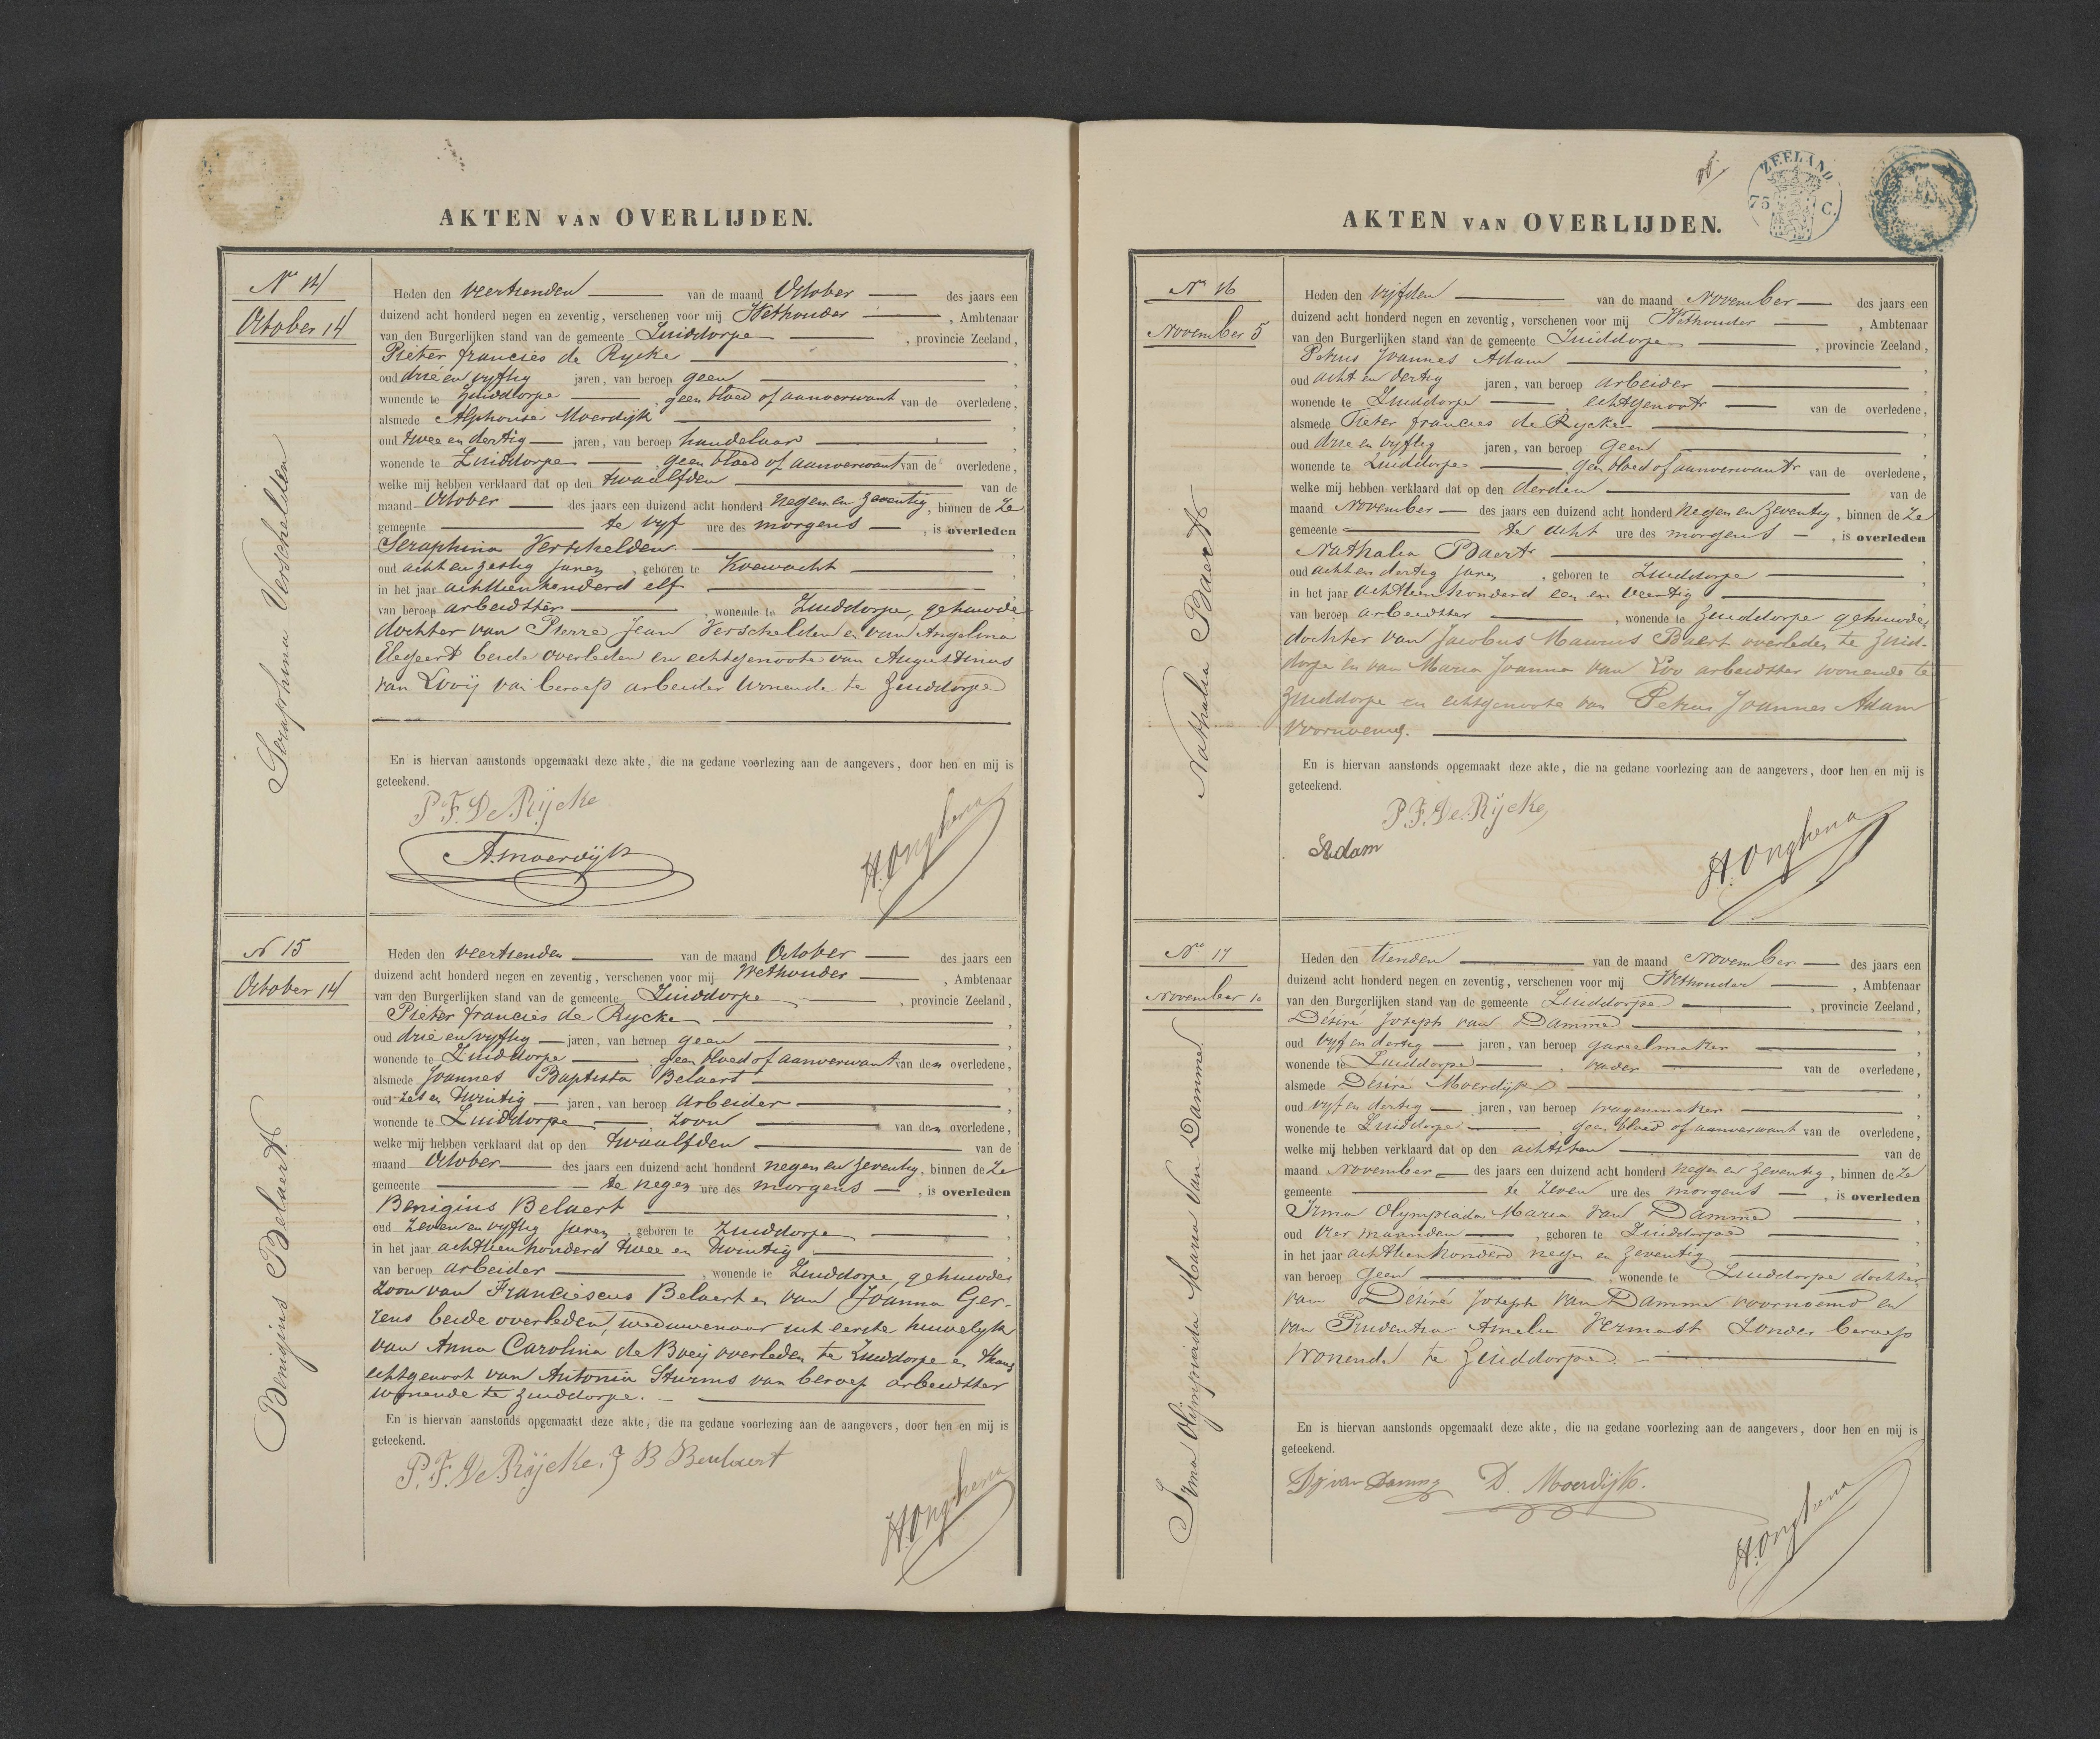 AKTEN VAN OVERLIJDEN.
No 14
October 14
Seraphina Verschelden
Heden den veertienden van de maand October des jaars een
duizend acht honderd negen en zeventig, verschenen voor mij Wethouder, Ambtenaar
van den Burgerlijken stand van de gemeente Zuiddorpe, provincie Zeeland,
Pieter francies de Rycke,
oud drie en vyftig jaren, van beroep geen,
wonende te Zuiddorpe, geen bloed of aanverwant van de overledene,
alsmede Alphonse Moerdijk,
oud twee en dertig jaren, van beroep handelaar,
wonende te Zuiddorpe, geen bloed of aanverwant van de overledene,
welke mij hebben verklaard dat op den twaalfden van de
maand October des jaars een duizend acht honderd negen en zeventig, binnen de ze
gemeente te vyf ure des morgens, is overleden
Seraphina Verschelden,
oud acht en zestig jaren, geboren te Koewacht
in het jaar achttienhonderd elf,
van beroep arbeidster, wonende te Zuiddorpe, gehuwde
dochter van Pierre Jean Verschelden en van Angelina
Elegeert beide overleden en echtgenoote van Augustinus
van Looÿ van beroep arbeider wonende te Zuiddorpe
En is hiervan aanstonds opgemaakt deze akte, die na gedane voorlezing aan de aangevers, door hen en mij is
geteekend.
P. F. De Rijcke
A. moerdijk
H. Onghena
N 15
October 14
Benigius Belaert
Heden den veertienden van de maand October des jaars een
duizend acht honderd negen en zeventig, verschenen voor mij Wethouder, Ambtenaar
van den Burgerlijken stand van de gemeente Zuiddorpe, provincie Zeeland,
Pieter francies de Rycke,
oud drie en vyftig jaren, van beroep geen,
wonende te Zuiddorpe, geen bloed of aanverwant van den overledene,
alsmede Joannes Baptista Belaert,
oud zes en twintig jaren, van beroep arbeider,
wonende te Zuiddorpe, zoon van den overledene,
welke mij hebben verklaard dat op den twaalfden van de
maand October des jaars een duizend acht honderd negen en zeventig, binnen de ze
gemeente te negen ure des morgens, is overleden
Benigius Belaert,
oud zeven en vyftig jaren, geboren te Zuiddorpe,
in het jaar achttienhonderd twee en twintig,
van beroep arbeider, wonende te Zuiddorpe, gehuwde
zoon van Franciescus Belaert en van Joanna Ger-
rens beide overleden, weduwenaar uit eerste huwelyk
van Anna Carolina de Boeij overleden te Zuiddorpe en thans
echtgenoot van Antonia Sturms van beroep arbeidster
wonende te Zuiddorpe.
En is hiervan aanstonds opgemaakt deze akte, die na gedane voorlezing aan de aangevers, door hen en mij is
geteekend.
P. F. De Rijcke. J B Beulaert
H. Onghena
ZEELAND
75 C.
AKTEN VAN OVERLIJDEN.
No 16
November 5
Nathalia Baert
Heden den vyfden van de maand November des jaars een
duizend acht honderd negen en zeventig, verschenen voor mij Wethouder, Ambtenaar
van den Burgerlijken stand van de gemeente Zuiddorpe, provincie Zeeland,
Petrus Joannes Adam,
oud acht en dertig jaren, van beroep arbeider,
wonende te Zuiddorpe, echtgenoot van de overledene,
alsmede Pieter francies de Rycke,
oud drie en vyftig jaren, van beroep geen,
wonende te Zuiddorpe, geen bloed of aanverwant van de overledene,
welke mij hebben verklaard dat op den derden van de
maand November des jaars een duizend acht honderd negen en zeventig, binnen de ze
gemeente te acht ure des morgens, is overleden
Nathalia Baert,
oud acht en dertig jaren, geboren te Zuiddorpe,
in het jaar achttienhonderd een en veertig,
van beroep arbeidster, wonende te Zuiddorpe gehuwde
dochter van Jacobus Maurus Baert overleden te Zuid-
dorpe en van Maria Joanna van Loo arbeidster wonende te
Zuiddorpe en echtgenoote van Petrus Joannes Adam
voornoemd.
En is hiervan aanstonds opgemaakt deze akte, die na gedane voorlezing aan de aangevers, door hen en mij is
geteekend.
P. F. De Rijcke
Adam
H. Onghena
No 17
November 10
Irma Olijmpiada Maria Van Damme
Heden den tienden van de maand November des jaars een
duizend acht honderd negen en zeventig, verschenen voor mij Wethouder, Ambtenaar
van den Burgerlijken stand van de gemeente Zuiddorpe, provincie Zeeland,
Désiré Joseph van Damme,
oud vyf en dertig jaren, van beroep gareelmaker,
wonende te Zuiddorpe, vader van de overledene,
alsmede Désiré Moerdijk,
oud vyf en dertig jaren, van beroep wagenmaker,
wonende te Zuiddorpe, geen bloed of aanverwant van de overledene,
welke mij hebben verklaard dat op den achtsten van de
maand November des jaars een duizend acht honderd negen en zeventig, binnen de ze
gemeente te zeven ure des morgens, is overleden
Irma Olympiada Maria van Damme,
oud vier maanden, geboren te Zuiddorpe,
in het jaar achttienhonderd negen en zeventig,
van beroep geen, wonende te Zuiddorpe dochter
van Désiré Joseph van Damme voornoemd en
van Prudentia Amelia Vermast zonder beroep
wonende te Zuiddorpe.
En is hiervan aanstonds opgemaakt deze akte, die na gedane voorlezing aan de aangevers, door hen en mij is
geteekend.
D J van Damme D. Moerdijk.
H. Onghena